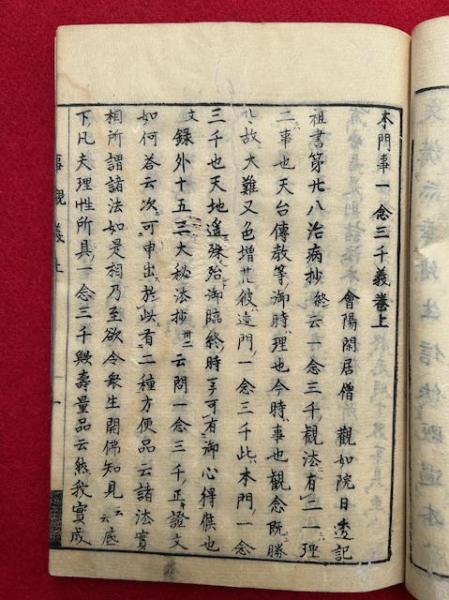 本門事一念三千義巻上
會陽閑居僧 觀如院日透記
祖書第廿八治病抄終云一念三千觀法有二一理
二事也天台傳教等御時理也今時事也觀念既勝
故大難又色增彼迹門一念三千此本門一念
三千也天地遙殊殆御臨終時可有御心得候也
文録外十五三大秘法抄云問一念三千正證文
如何答云次可申出於此有二種方便品云諸法實
相所謂諸法如是相乃至欲令衆生開佛知見云云底
下凡夫理性所具一念三千歟壽量品云然我實成
事觀義上 一